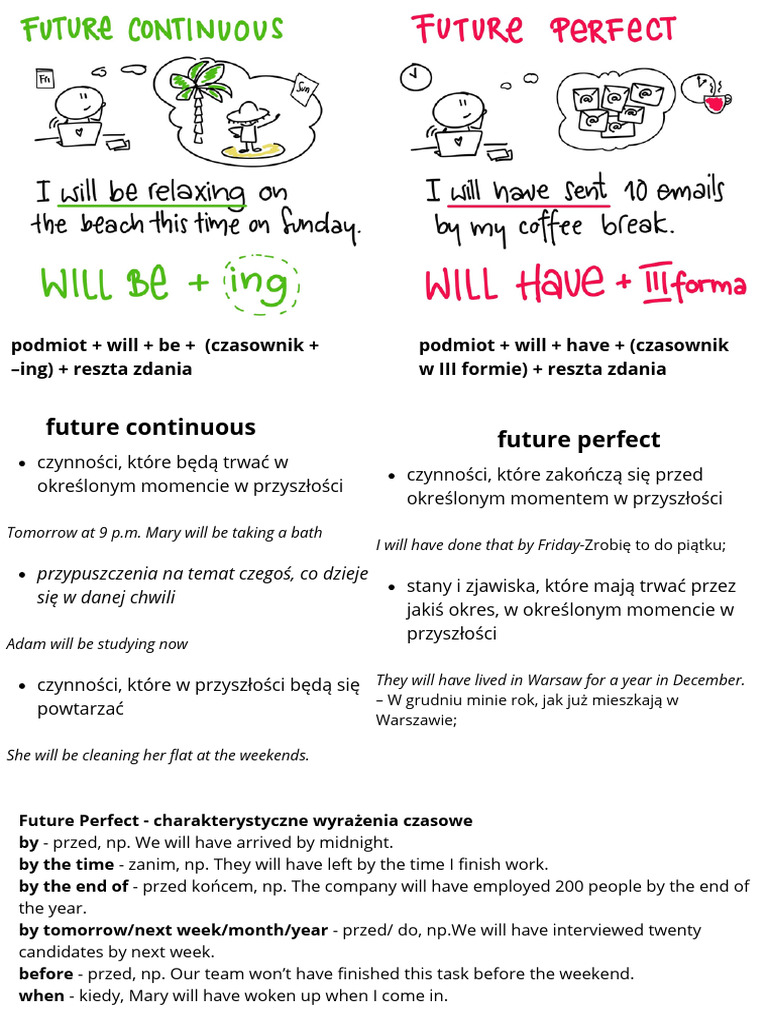 FUTURE CONTINUOUS
Fri
Sun
I will be relaxing on
the beach this time on Sunday.
WILL BE + ing
podmiot + will + be + (czasownik +
–ing) + reszta zdania
future continuous
• czynności, które będą trwać w
określonym momencie w przyszłości
Tomorrow at 9 p.m. Mary will be taking a bath
• przypuszczenia na temat czegoś, co dzieje
się w danej chwili
Adam will be studying now
• czynności, które w przyszłości będą się
powtarzać
She will be cleaning her flat at the weekends.
FUTURE PERFECT
I will have sent 10 emails
by my coffee break.
WILL HAVE + III forma
podmiot + will + have + (czasownik
w III formie) + reszta zdania
future perfect
• czynności, które zakończą się przed
określonym momentem w przyszłości
I will have done that by Friday-Zrobię to do piątku;
• stany i zjawiska, które mają trwać przez
jakiś okres, w określonym momencie w
przyszłości
They will have lived in Warsaw for a year in December.
– W grudniu minie rok, jak już mieszkają w
Warszawie;
Future Perfect - charakterystyczne wyrażenia czasowe
by - przed, np. We will have arrived by midnight.
by the time - zanim, np. They will have left by the time I finish work.
by the end of - przed końcem, np. The company will have employed 200 people by the end of
the year.
by tomorrow/next week/month/year - przed/ do, np.We will have interviewed twenty
candidates by next week.
before - przed, np. Our team won’t have finished this task before the weekend.
when - kiedy, Mary will have woken up when I come in.